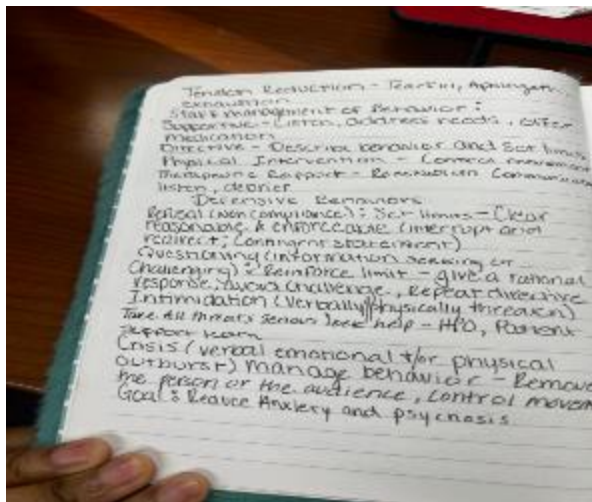 Tension Reduction - Tearful, Apologetic
exhaustion
Staff management of Behavior:
Supportive - Listen, address needs, offer
medication
Directive - Describe behavior and Set limits
Physical Intervention - Control movement
Therapeutic Rapport - Reestablish Communication
listen, debrief
Defensive Behaviors
Refusal (Non compliance): Set limits - Clear
reasonable & enforceable (interrupt and
redirect; Contingent statement)
Questioning (information seeking or
Challenging): Reinforce limit - give a rational
response, avoid challenge, Repeat directive
Intimidation (Verbally/physically threaten)
Take All threats serious seek help - HPO, Patient
support team
Crisis (verbal emotional +/or physical
outburst) Manage behavior - Remove
the person or the audience, control movem
Goal: Reduce Anxiety and psychosis.